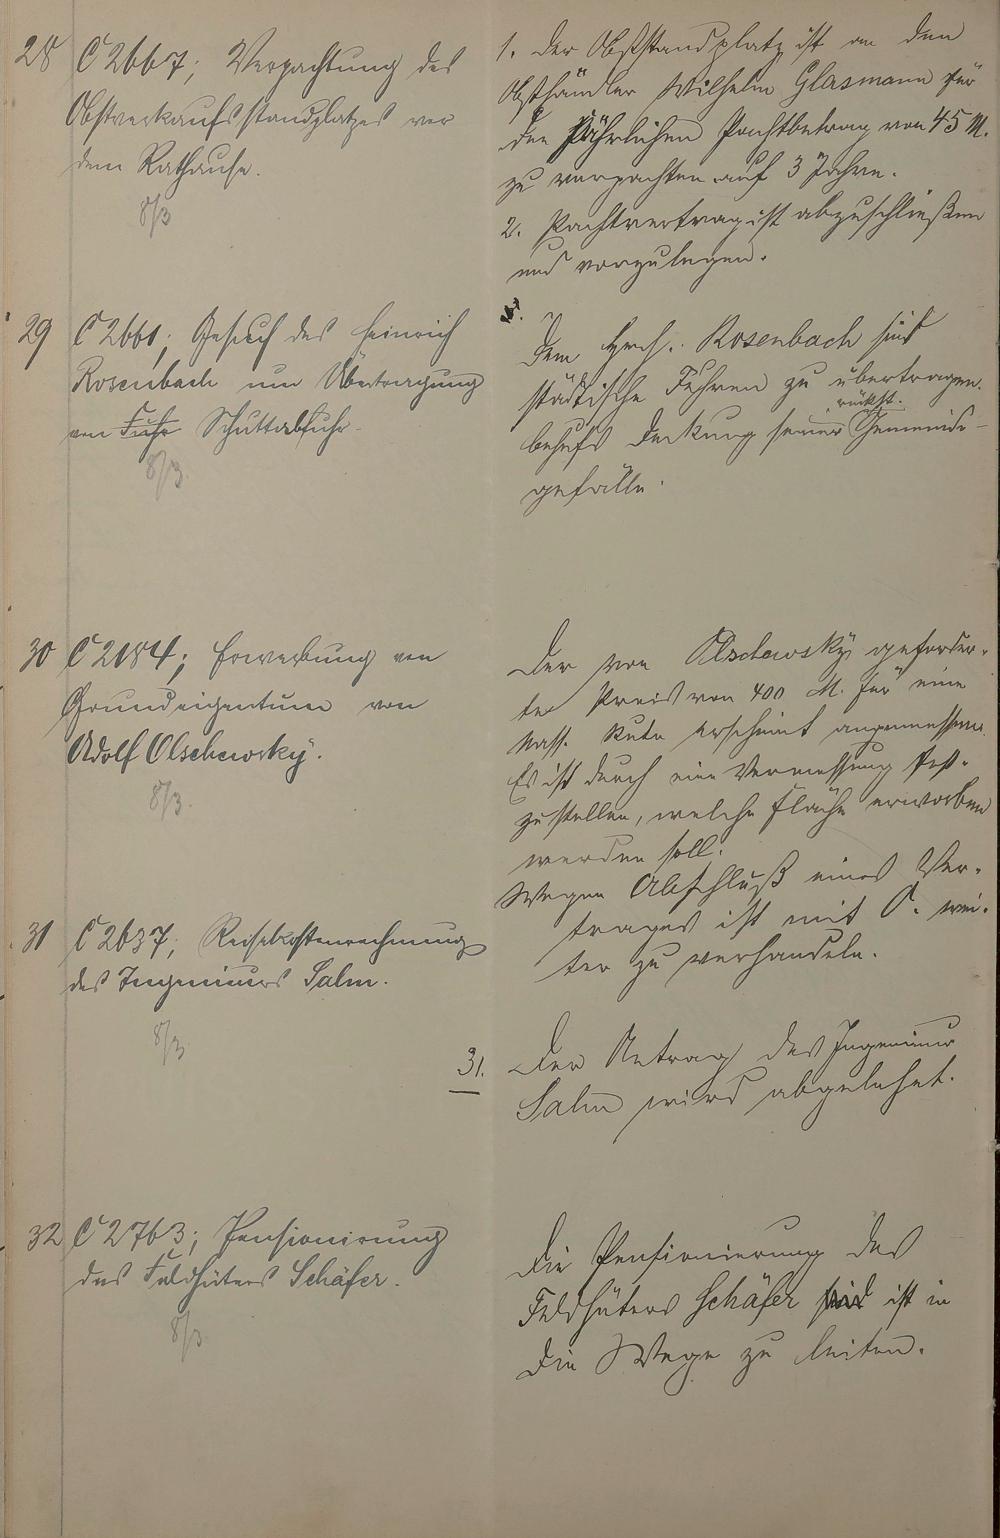 28 C 2667; Verpachtung des
Obstverkaufsstandplatzes vor
dem Rathause.
8/3
1. Der Obststandplatz ist an den
Obsthändler Wilhelm Glasmann für
den jährlichen Pachtbetrag von 45 M.
zu verpachten auf 3 Jahre.
2. Pachtvertrag ist abzuschließen
und vorzulegen.
29 C 2661; Gesuch des Heinrich
Rosenbach um Übertragung
von Fuhr Schuttabfuhr.
8/3.
Dem Hrch. Rosenbach sind
städtische Fuhren zu übertragen
rückst.
behufs Deckung seiner Gemeinde-
gefälle.
30 C 2184; Erwerbung von
Grundeigentum von
Adolf Olschewsky.
8/3.
Der von Olschewsky geforder-
te Preis von 400 M. für eine
Nass. Rute erscheint angemessen.
Es ist durch eine Vermessung fest-
zustellen, welche Fläche erworben
werden soll.
Wegen Abschluß eines Ver-
trages ist mit O. wei-
ter zu verhandeln.
31 C 2637; Reisekostenrechnung
des Ingenieurs Salm.
8/3
31. Der Antrag des Ingenieur
Salm wird abgelehnt.
32 C 2763; Pensionierung
des Feldhüters Schäfer.
8/3
Die Pensionierung des
Feldhüters Schäfer sind ist in
die Wege zu leiten.